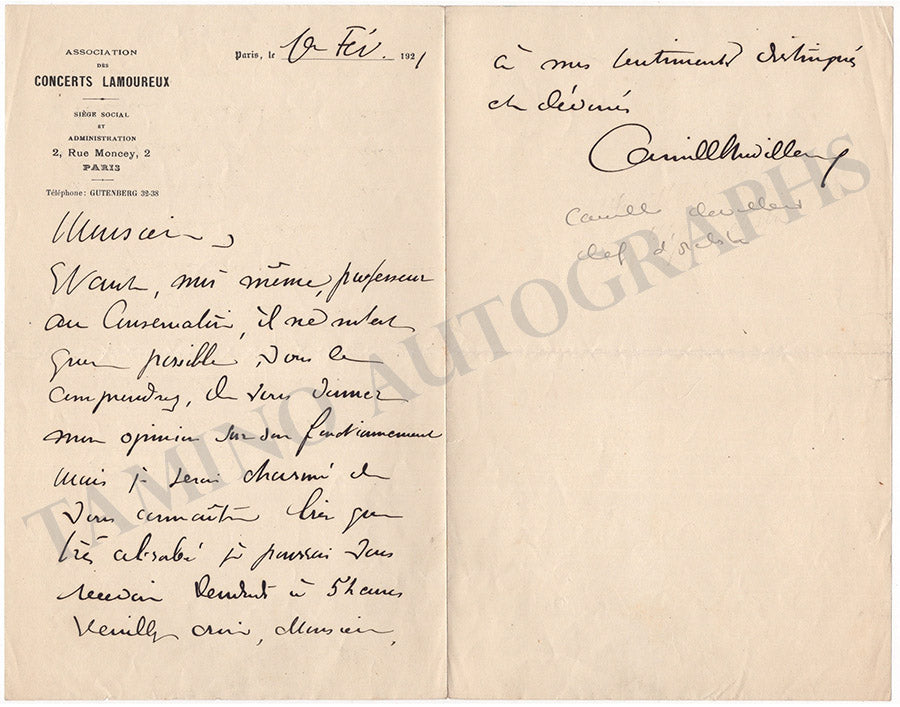 ASSOCIATION
DES
CONCERTS LAMOUREUX
SIÈGE SOCIAL
ET
ADMINISTRATION
2, Rue Moncey, 2
PARIS
Téléphone: GUTENBERG 32-38
Paris, le 1er Fév. 1921
Monsieur,
Etant, moi même, professeur
au Conservatoire, il ne m'est
guère possible, vous le
comprendrez, de vous donner
mon opinion sur son fonctionnement
mais je serai charmé de
vous connaître bien que
très absorbé je pourrai vous
recevoir Vendredi à 5 heures
Veuillez croire, Monsieur,
à mes sentiments distingués
et dévoués
Camille Chevillard
Camille Chevillard
chef d'orchestre
TAMINO AUTOGRAPHS